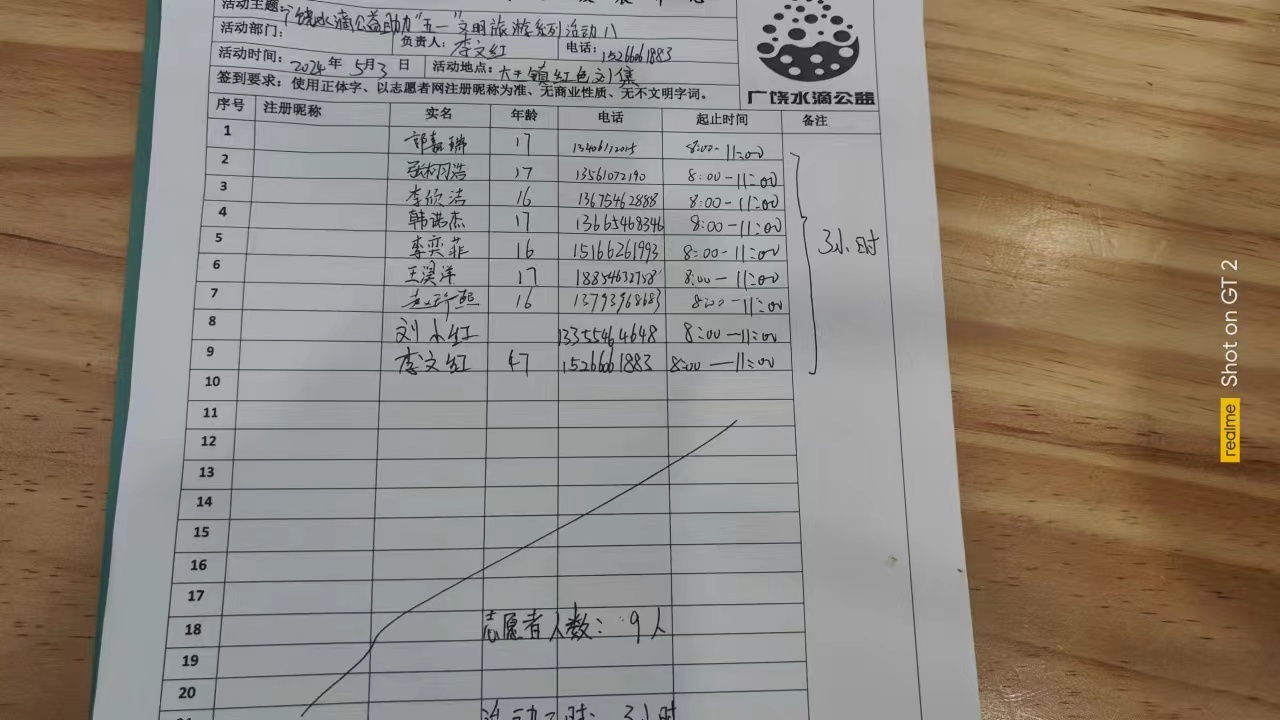 活动主题:广饶水滴公益助力"五一"文明旅游系列活动八
活动部门: 负责人:李文红 电话:15266061883
活动时间:2024年5月3日 活动地点:大王镇红色刘集
签到要求:使用正体字、以志愿者网注册昵称为准、无商业性质、无不文明字词。
广饶水滴公益
序号 注册昵称 实名 年龄 电话 起止时间 备注
1 17 13406112015 8:00-11:00
2 张栩浩 17 13561072190 8:00-11:00
3 李欣洁 16 13675462888 8:00-11:00
4 韩诺杰 17 13665468346 8:00-11:00
5 李奕菲 16 15166261993 8:00-11:00
6 王淏洋 17 18854632758 8:00-11:00
7 16 13793968683 8:00-11:00
8 刘小红 13355464648 8:00-11:00
9 李文红 47 15266061883 8:00-11:00
3小时
10
11
12
13
14
15
16
17
18
志愿者人数:9人
19
20
活动工时:3小时
realme Shot on GT 2